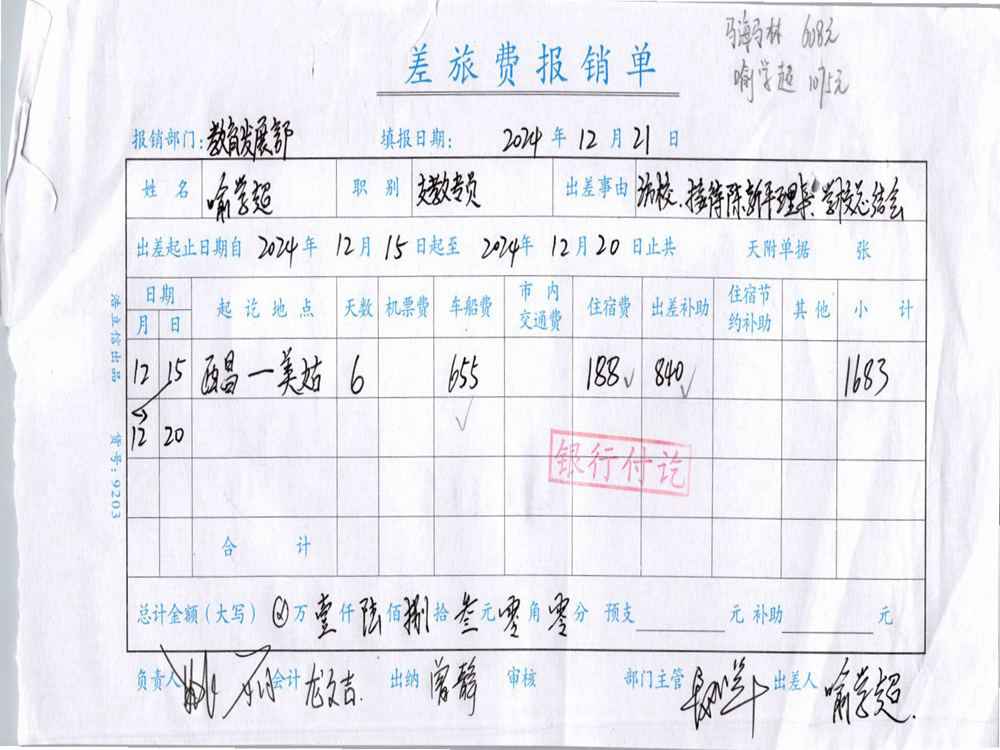 马海马林 608元
喻学超 1075元
差旅费报销单
报销部门: 教育发展部 填报日期: 2024 年 12 月 21 日
姓名 喻学超 职别 支教专员 出差事由 访校、接待陈新平理事、学校总结会
出差起止日期自 2024 年 12 月 15 日起至 2024 年 12 月 20 日止共 天附单据 张
日期 起讫地点 天数 机票费 车船费 市内交通费 住宿费 出差补助 住宿节约补助 其他 小计
月 日
12 15 西昌一美姑 6 655 188 840 1683
12 20
银行付讫
合计
总计金额(大写) ⊗万 壹仟 陆佰 捌拾 叁元 零角 零分 预支 元 补助 元
负责人 会计 龙文吉 出纳 曾静 审核 部门主管 出差人 喻学超
货号: 9203